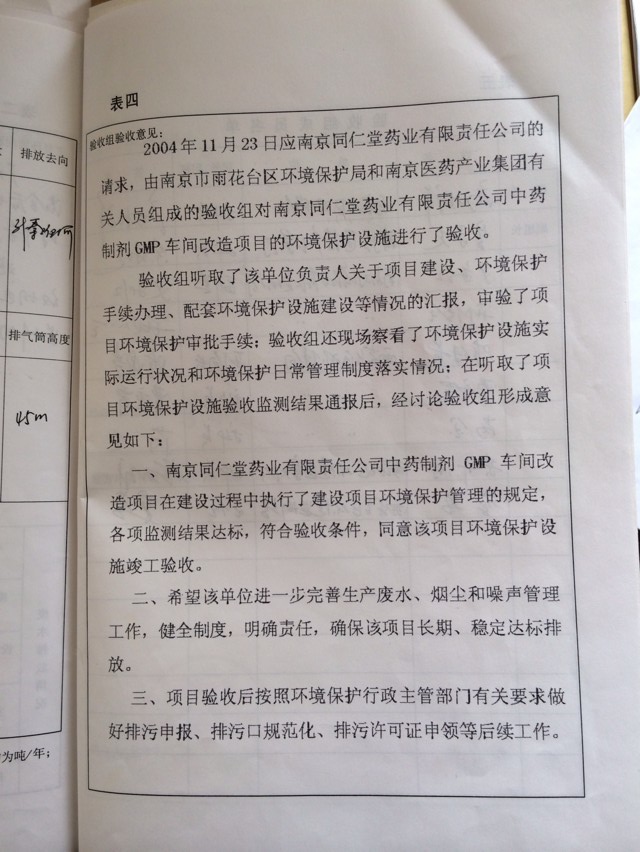 表四
验收组验收意见：
2004年11月23日应南京同仁堂药业有限责任公司的
请求，由南京市雨花台区环境保护局和南京医药产业集团有
关人员组成的验收组对南京同仁堂药业有限责任公司中药
制剂GMP车间改造项目的环境保护设施进行了验收。
验收组听取了该单位负责人关于项目建设、环境保护
手续办理、配套环境保护设施建设等情况的汇报，审验了项
目环境保护审批手续；验收组还现场察看了环境保护设施实
际运行状况和环境保护日常管理制度落实情况；在听取了项
目环境保护设施验收监测结果通报后，经讨论验收组形成意
见如下：
一、南京同仁堂药业有限责任公司中药制剂 GMP 车间改
造项目在建设过程中执行了建设项目环境保护管理的规定，
各项监测结果达标，符合验收条件，同意该项目环境保护设
施竣工验收。
二、希望该单位进一步完善生产废水、烟尘和噪声管理
工作，健全制度，明确责任，确保该项目长期、稳定达标排
放。
三、项目验收后按照环境保护行政主管部门有关要求做
好排污申报、排污口规范化、排污许可证申领等后续工作。
排放去向
排气筒高度
45m
为吨/年；